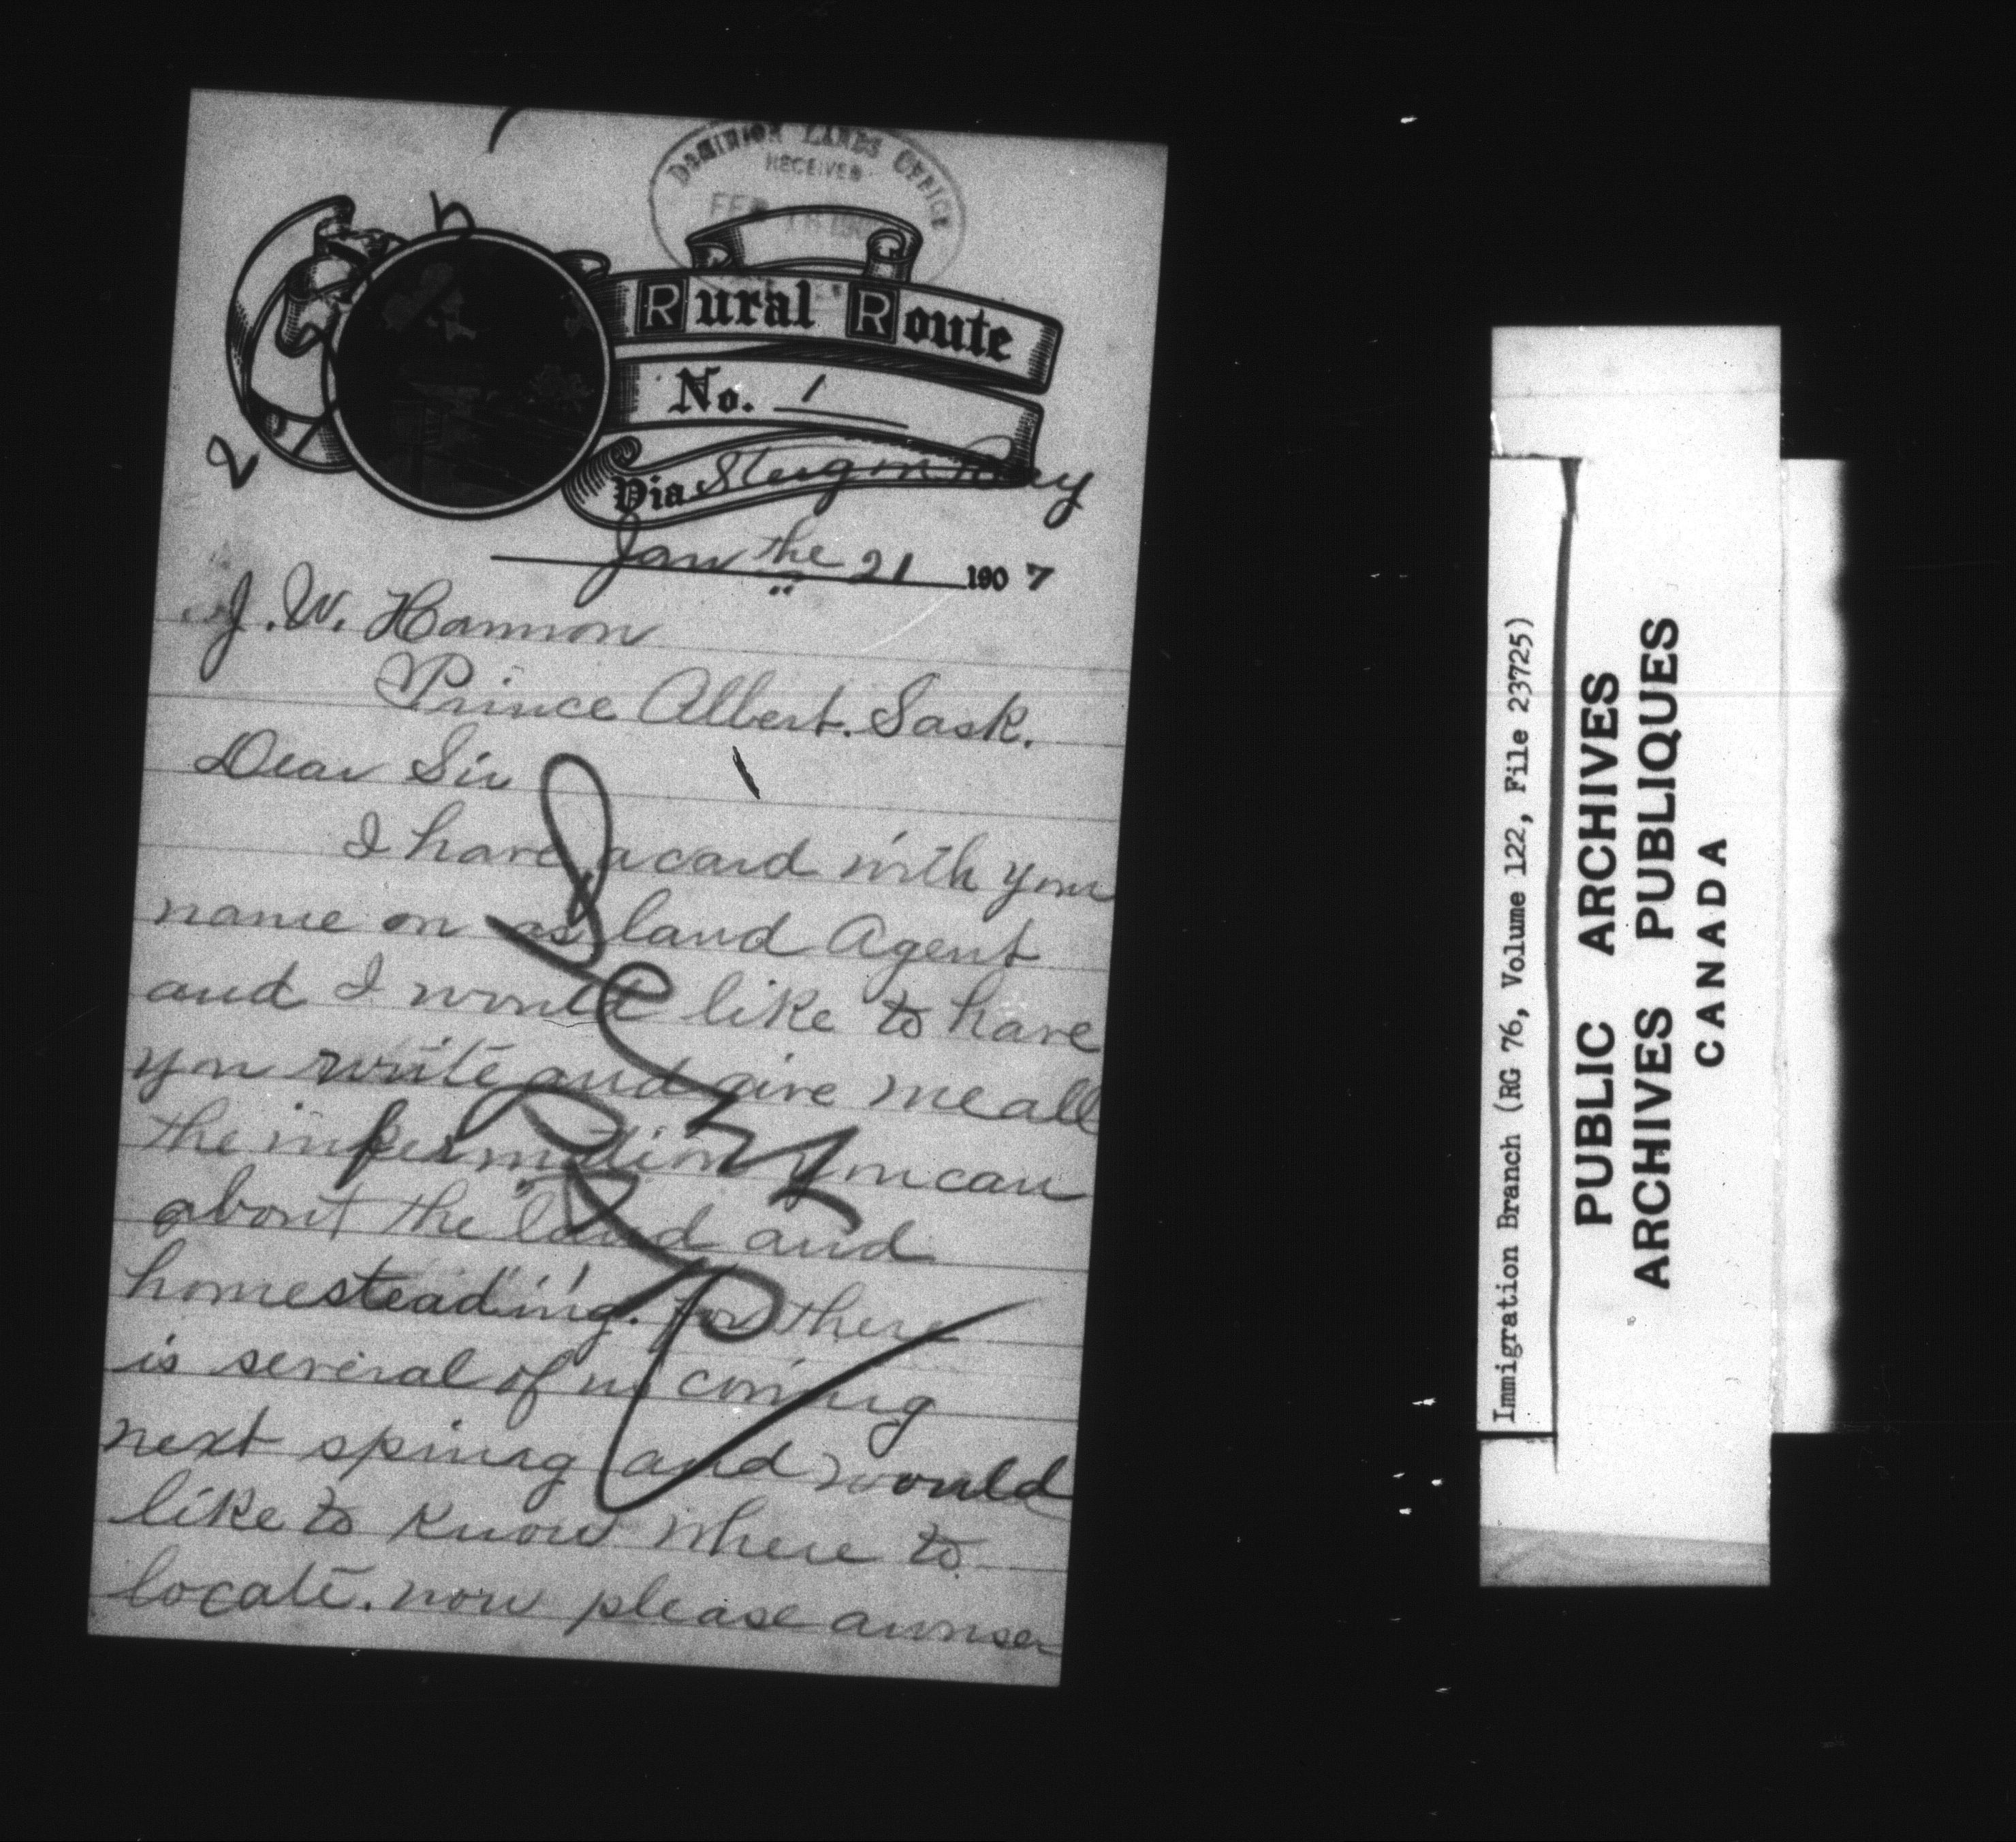 DOMINION LANDS OFFICE
RECEIVED
FEB 18 190
Rural Route
No. 1
Via Sturgeon Bay
Jan the 21 1907
J. W. Hannon
Prince Albert. Sask.
Dear Sir
I have a card with your
name on as land Agent
and I would like to have
you write and give me all
the information you can
about the land and
homesteading. for there
is several of us coming
next spring and would
like to know where to
locate. now please aunser
Immigration Branch (RG 76, Volume 122, File 23725)
PUBLIC ARCHIVES
ARCHIVES PUBLIQUES
CANADA